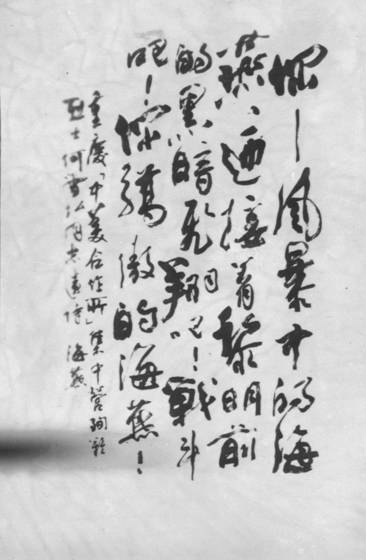 你！风暴中的海
燕，迎接着黎明前
的黑暗飞翔吧！战斗
吧！你骄傲的海燕！
重庆「中美合作所」集中营殉难
烈士何雪松同志遗诗 海燕